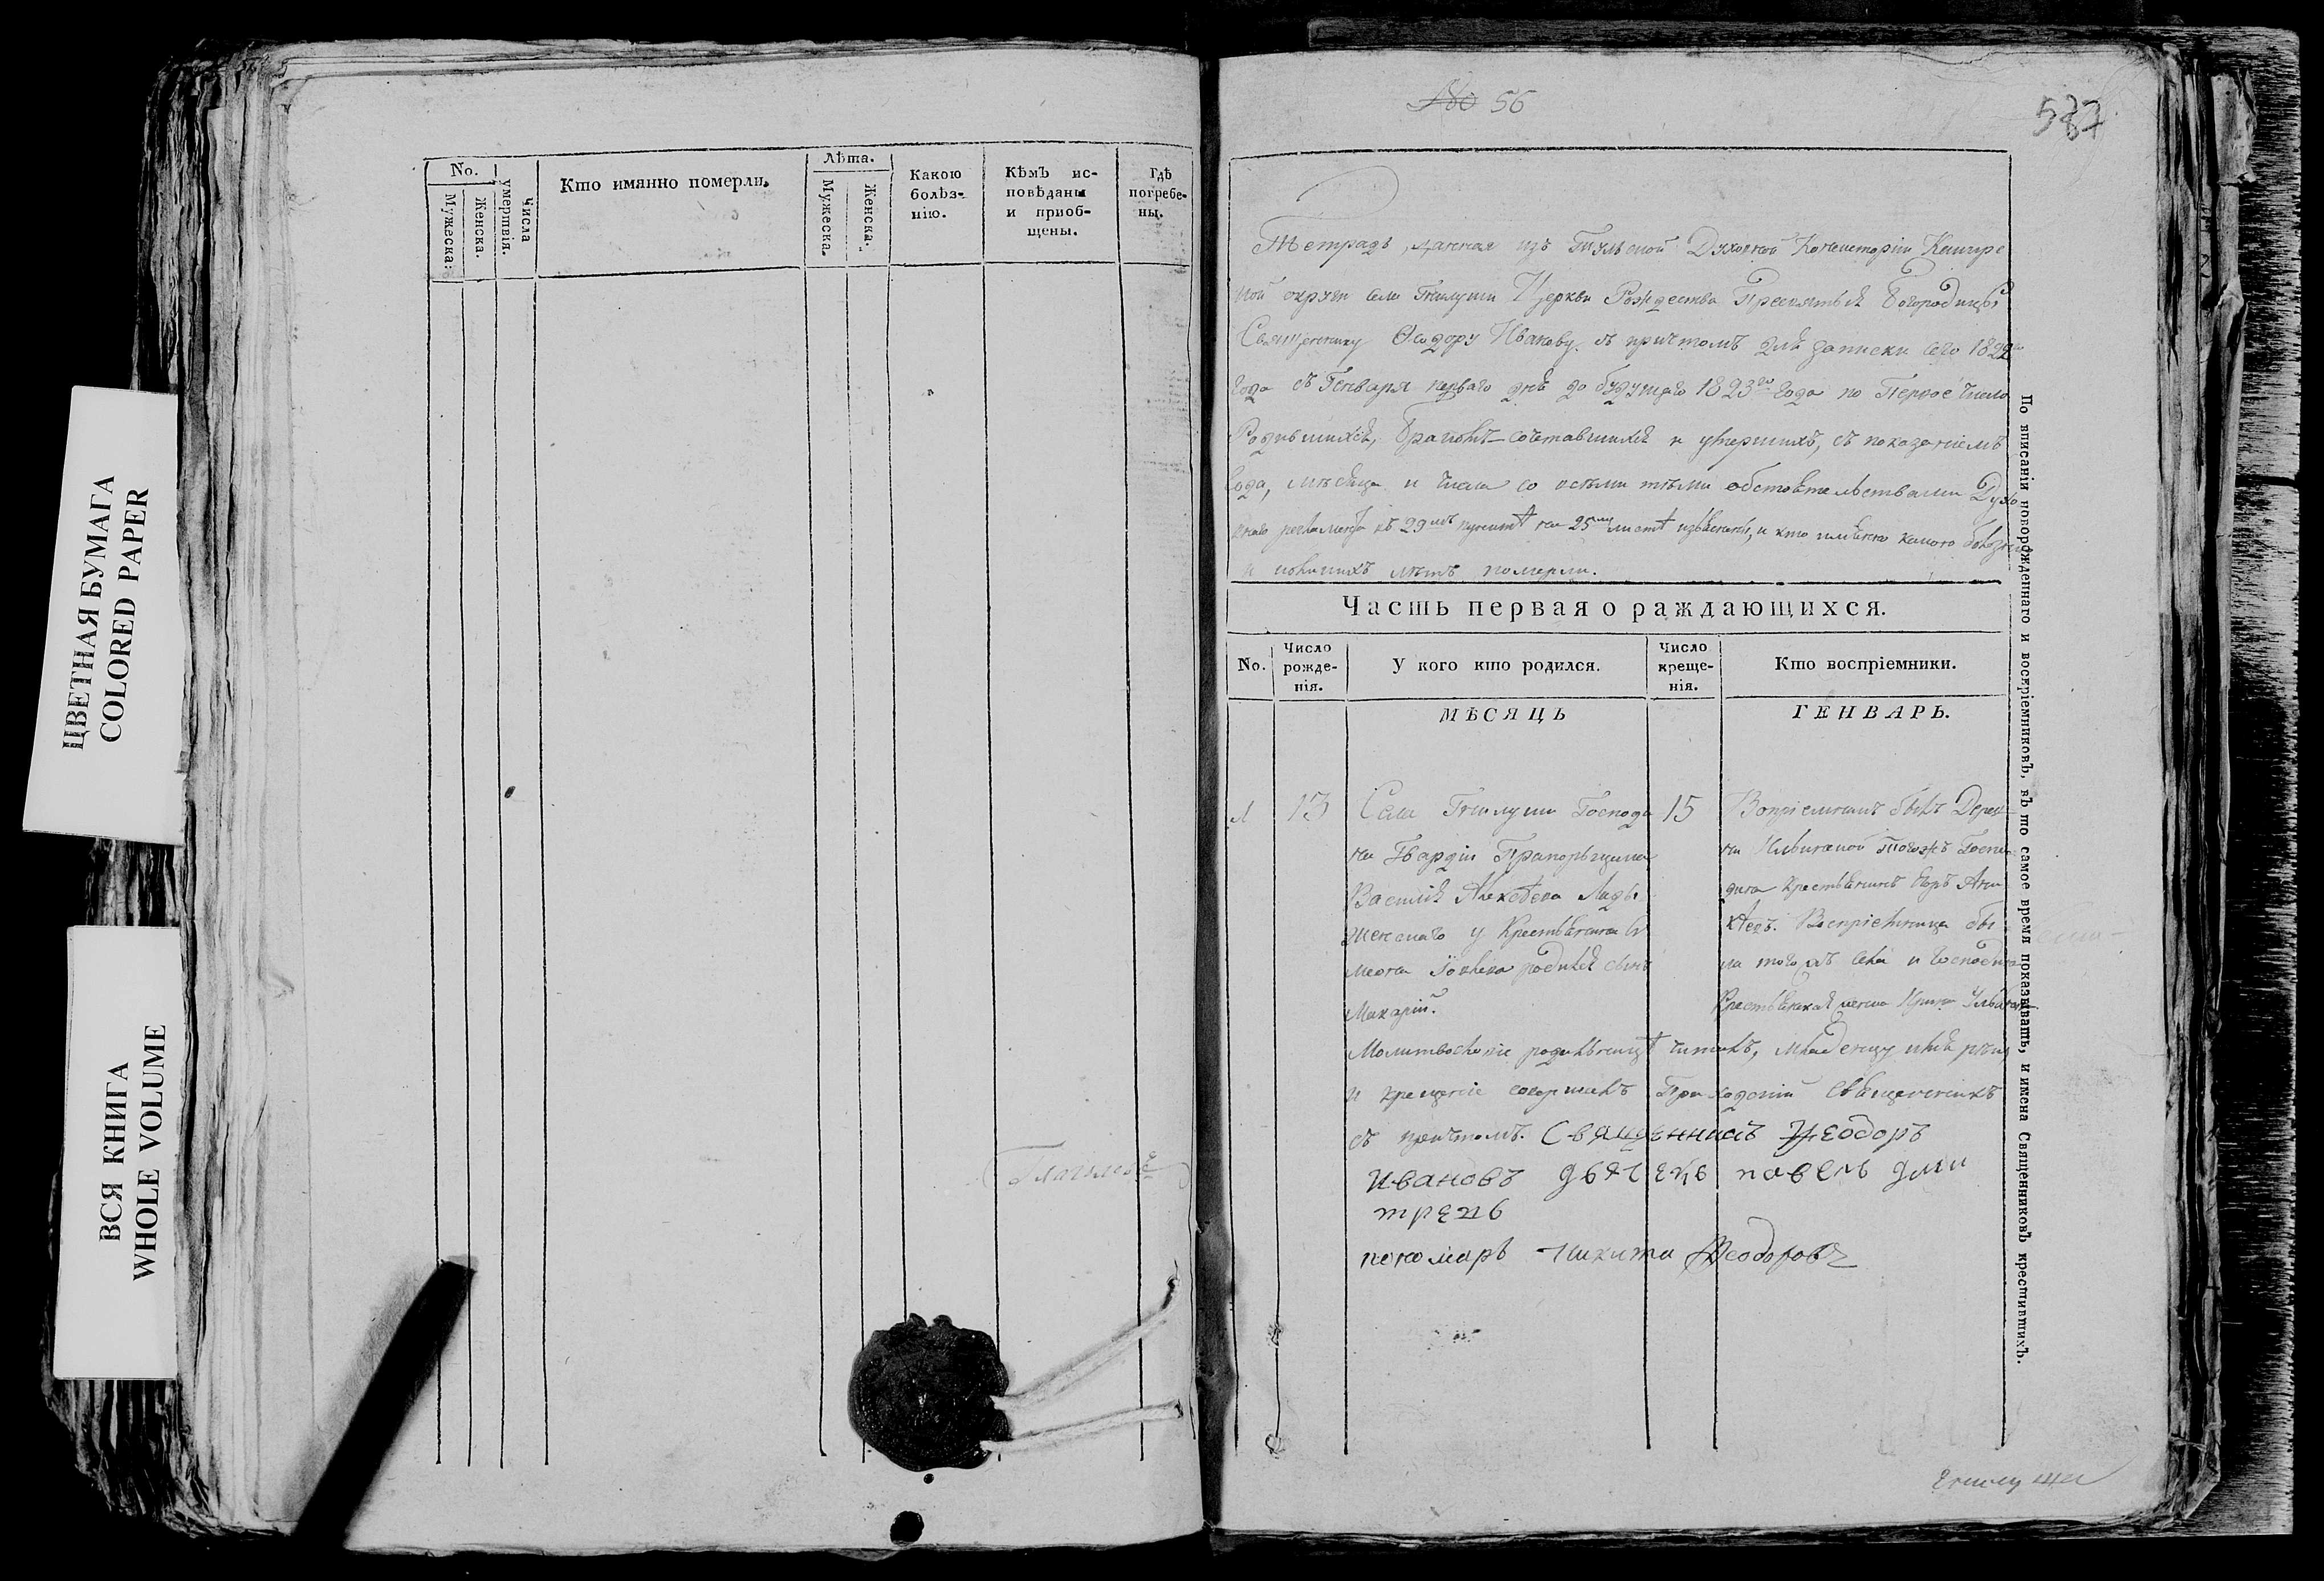 ЦВЕТНАЯ БУМАГА
COLORED PAPER
ВСЯ КНИГА
WHOLE VOLUME
No.
Мужеска.
Женска.
Числа умертвія.
Кто имянно померли.
Лѣта.
Мужеска.
Женска.
Какою болѣз-
нію.
Кѣмъ ис-
повѣданы
и приоб-
щены.
Гдѣ
погребе-
ны.
56
587
Тетрадь, данная изъ Тульской Духовной Консисторіи Кашире
кой округи села Церкви Рождества Пресвятыя Богородицы
Священнику Ѳеодору Иванову съ причтомъ для записки сего 1822го
года съ Генваря перваго дня до будущаго 1823го года по Первое число
Родившихся, бракомъ сочетавшихся и умершихъ, съ показаніемъ
года, мѣсяца и числа со всѣми тѣми обстоятельствами Духо
внаго регламента въ 29мъ пунктѣ на 25мъ листѣ и кто имянно какою болѣзнію
и лѣтъ померли.
Часть первая о раждающихся.
No.
Число
рожде-
нія.
У кого кто родился.
Число
креще-
нія.
Кто воспріемники.
МѢСЯЦЪ
ГЕНВАРЬ.
1
13
Села Господи
на Гвардіи Прапорьщика
Василія Алексѣева Лады
женскаго у Крестьянина Си
меона Іовлева родился сынъ
Макарій.
15
Воспріемникъ былъ Дерев
ни тогожъ Госпо
дина Крестьянинъ
Воспріемница бы
ла того жъ села и Господина
Крестьянская жена
Молитвословіе родильницѣ читалъ, младенцу имя рекъ
и крещеніе совершалъ Приходскій Священникъ
съ причтомъ. Священникъ Ѳеодоръ
Ивановъ дьячекъ павелъ дми
тревъ
пономарь Никита Ѳеодоровъ
По вписаніи новорожденнаго и воспріемниковъ, въ то самое время показывать, и имена Священниковъ крестившихъ.